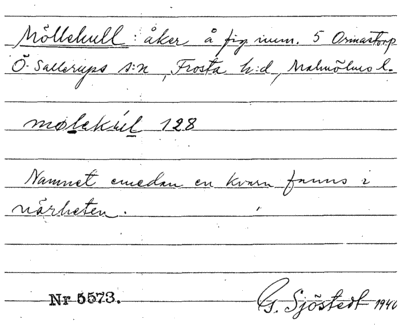 Möllehull : åker å fig inum. 5 Ormastorp
Ö. Sallerups s:n, Frosta h:d, Malmöhus l.
128
Namnet emedan en kvarn fanns i
närheten.
Nr 5573.
G. Sjöstedt 1946